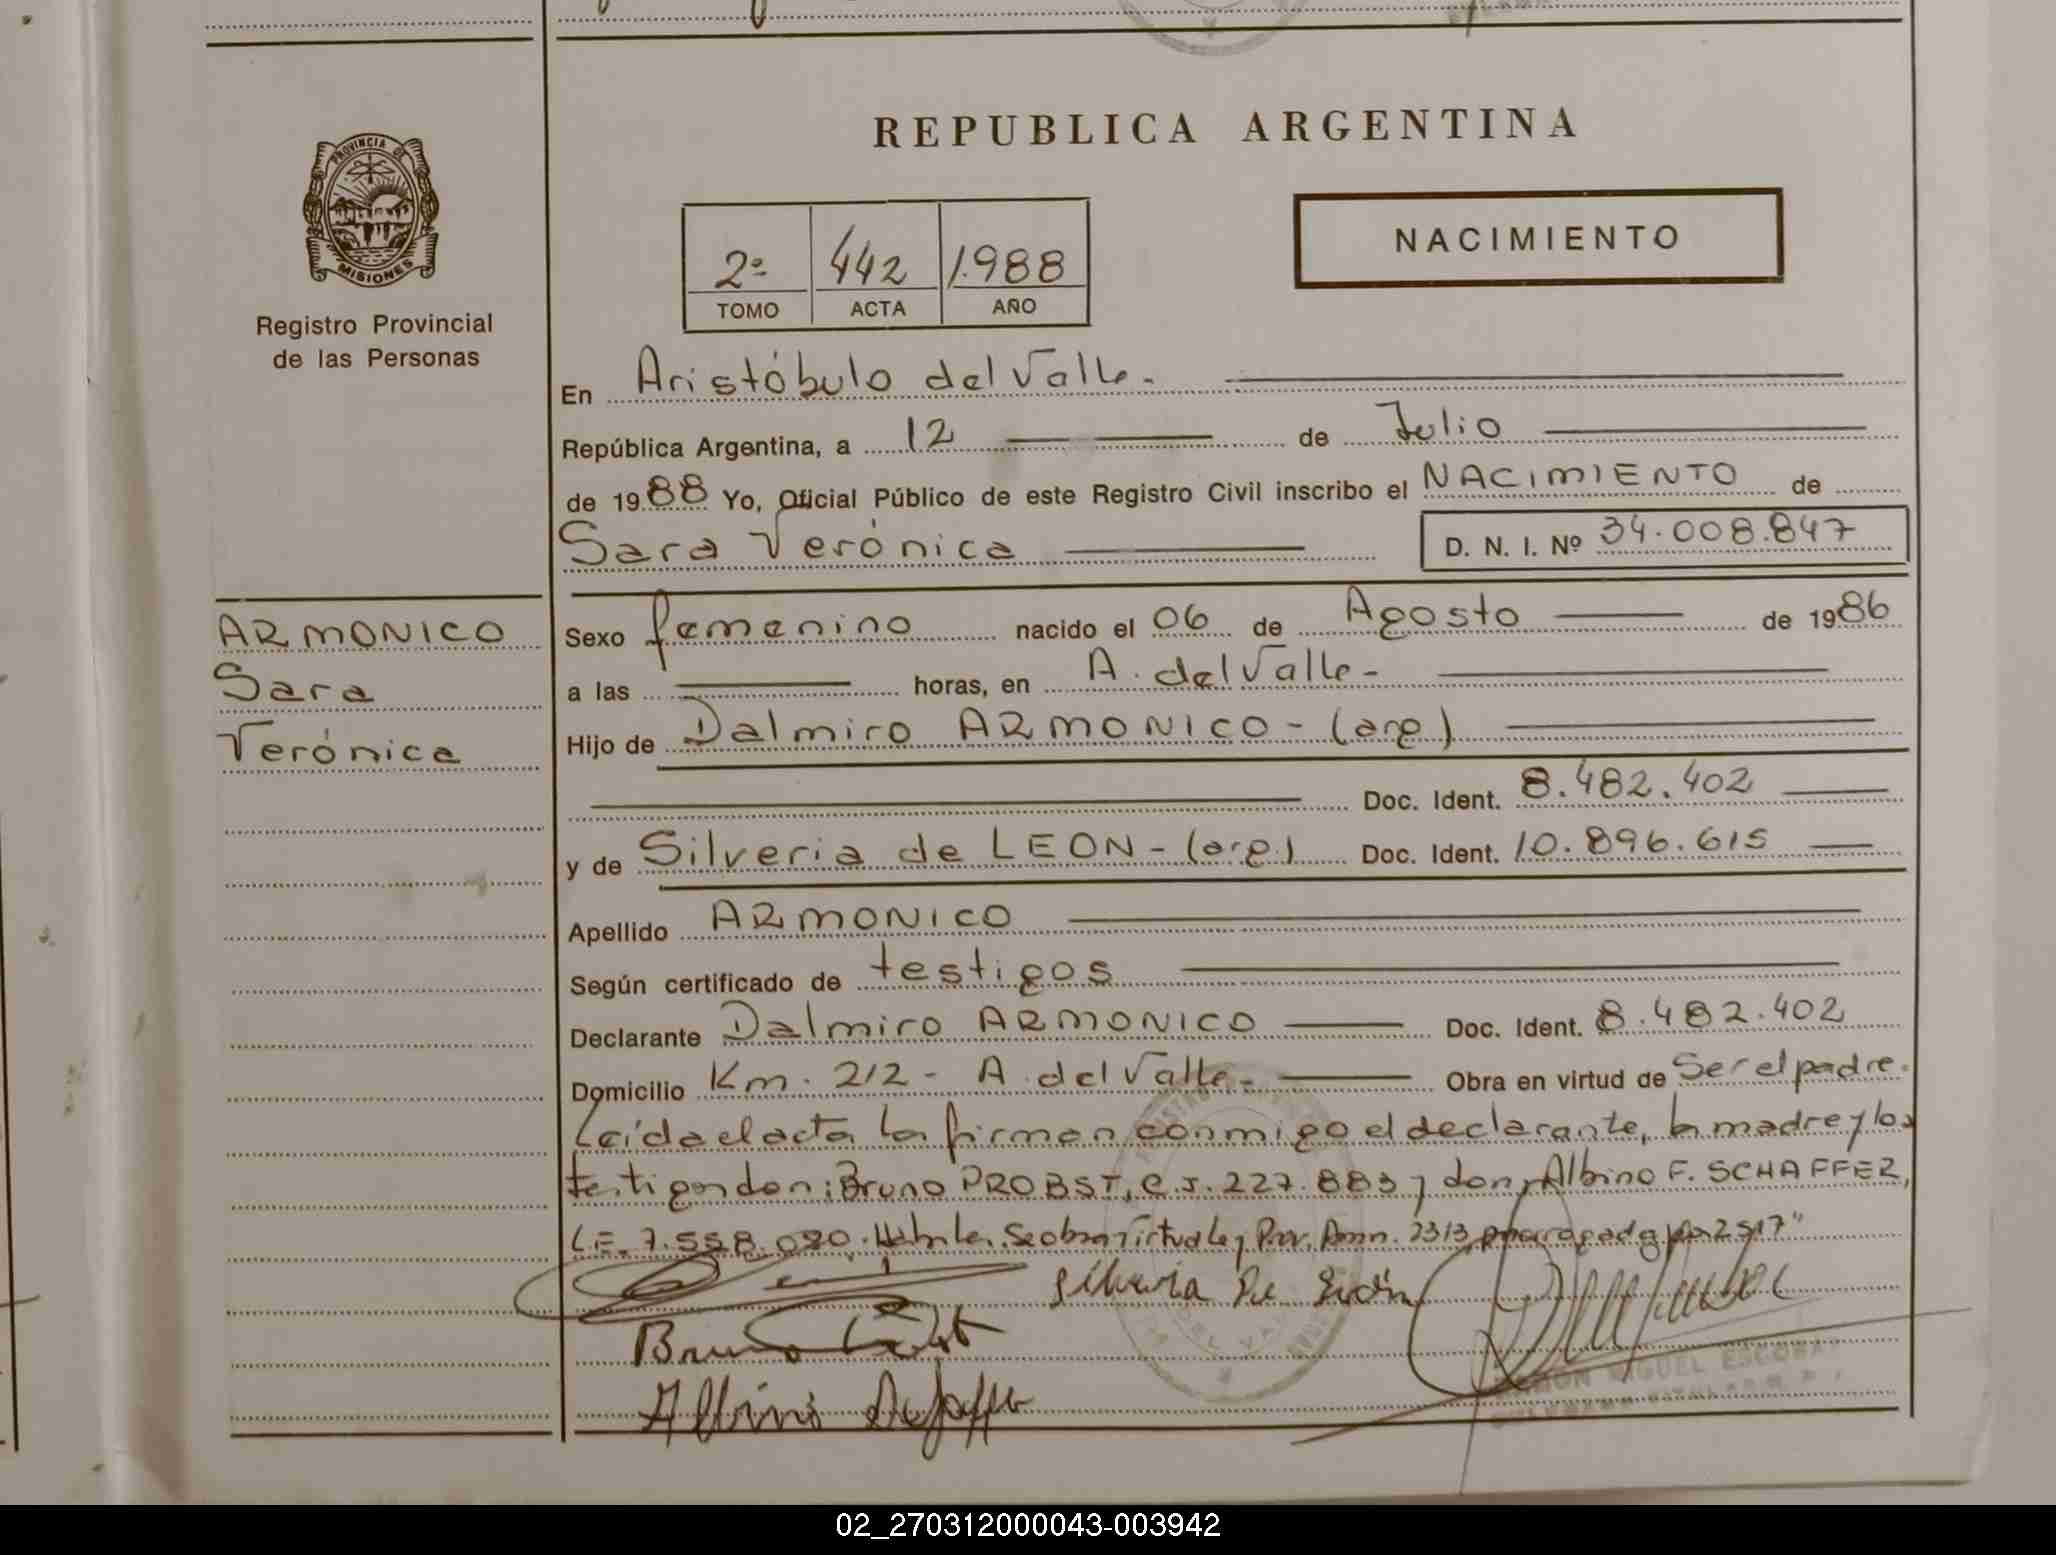 REPUBLICA ARGENTINA
PROVINCIA DE
MISIONES
Registro Provincial
de las Personas
2º 442 1.988
TOMO ACTA AÑO
NACIMIENTO
En Aristóbulo del Valle.-
República Argentina, a 12 de Julio
de 1988 Yo, Oficial Público de este Registro Civil inscribo el NACIMIENTO de
Sara Verónica D. N. I. Nº 34.008.847
ARMONICO
Sara
Verónica
Sexo femenino nacido el 06 de Agosto de 1986
a las horas, en A. del Valle-
Hijo de Dalmiro ARMONICO-(arg)
Doc. Ident. 8.482.402
y de Silveria de LEON-(arg.) Doc. Ident. 10.896.615
Apellido ARMONICO
Según certificado de testigos
Declarante Dalmiro ARMONICO Doc. Ident. 8.482.402
Domicilio Km. 212- A. del Valle- Obra en virtud de Ser el padre.
Leída el acta la firman conmigo el declarante, la madre y los
testigos don: Bruno PROBST, C.I. 227.883 y don Albino F. SCHAFFER,
L.E. 7.558.090. Se obra Virtud Ley Prov. 2313 2517"
Silveria De León
Bruno Probst
Albino Schaffer
RAMON MIGUEL ESCOBAR
02_270312000043-003942